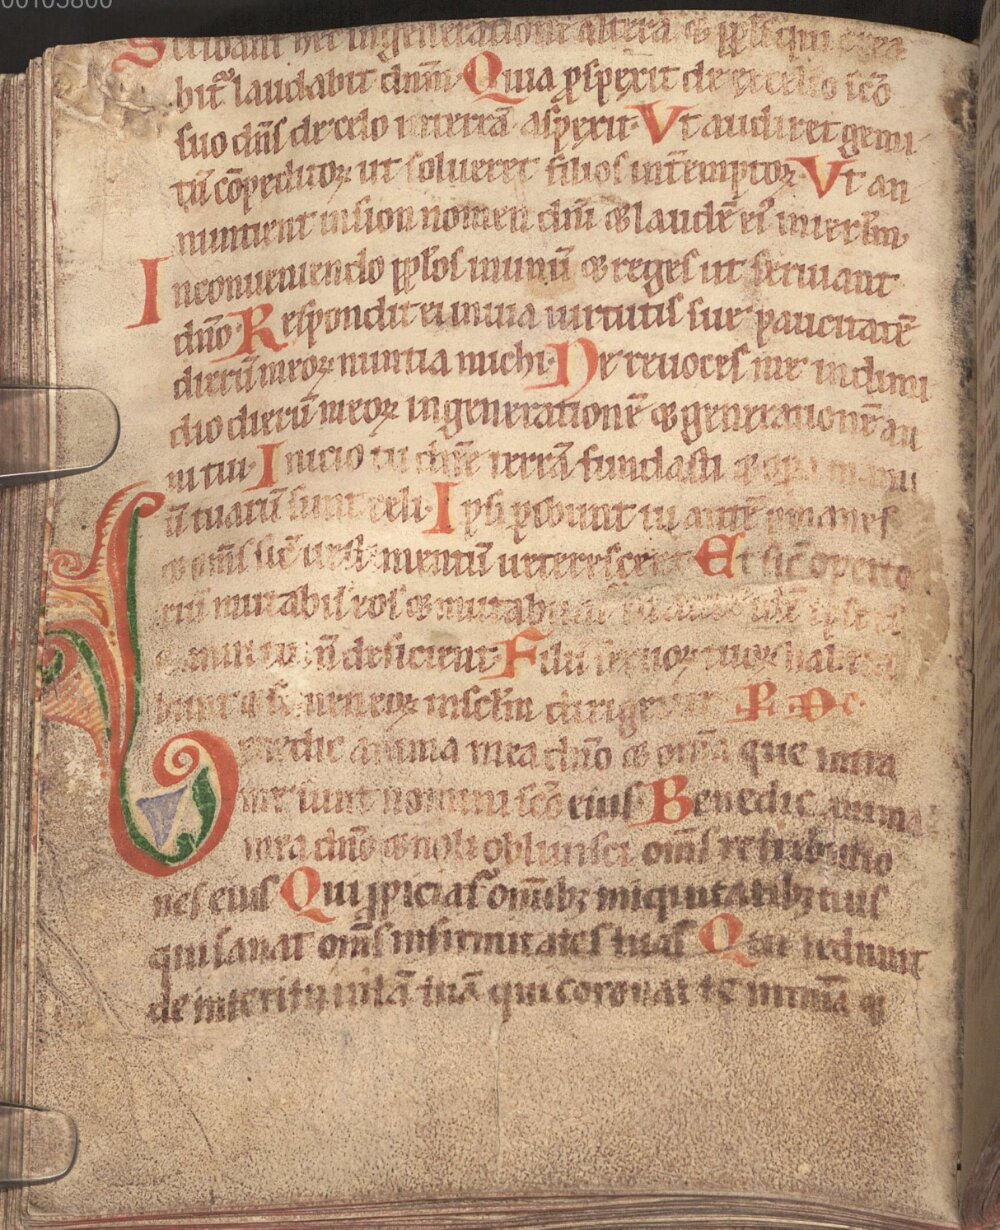 00105800
Scribant͛ hec ingeneratione altera ⁊ ppl̅s qui crea
bit᷑ laudabit dn̅m· Quia ꝓspexit de excelso sc̅o
suo dn̅s de celo in terrā aspexit· Vt audiret gemi
tū cōpeditoꝝ ut solueret filios int̅emptoꝝ Vt an
nuntient insion nomen dn̅i ⁊ laudē ei᷒ in ierl̅m·
Inconueniendo ppl̅os inunū ⁊ reges ut seruiant
dn̅o· Respondit ei inuia uirtutis sue paucitatē
dierū meoꝝ nuntia michi· Ne reuoces me in dimi
dio dierū meoꝝ in generationē ⁊ generationē an
ni tui· Inicio tu dn̅e terrā fundasti ⁊ opa manu
ū tuarū sunt celi· Ipsi ꝑibunt tu autē ꝑmanes
⁊ om̅s sic̅ uesti mentū ueterescent Et sic̅ operto
riū mutabis eos ⁊ mutabunt᷑ tu autē idē ipse es
⁊ anni tui n̅ deficient· Filii seruoꝝ tuoꝝ habita
bunt ⁊ sem̅ eoꝝ insclm̅ dirigetur
Benedic anima mea dn̅o ⁊ om̅ia que intra
me sunt nomini sc̅o eius· Benedic anima
mea dn̅o ⁊ noli obliuisci om̅s retributio
nes eius Qui ꝓpiciat᷑ om̅ib; iniquitatib; tuis
qui sanat om̅s infirmitates tuas Qui redimit
de interitu uitā tuā qui coronat te in mīa ⁊